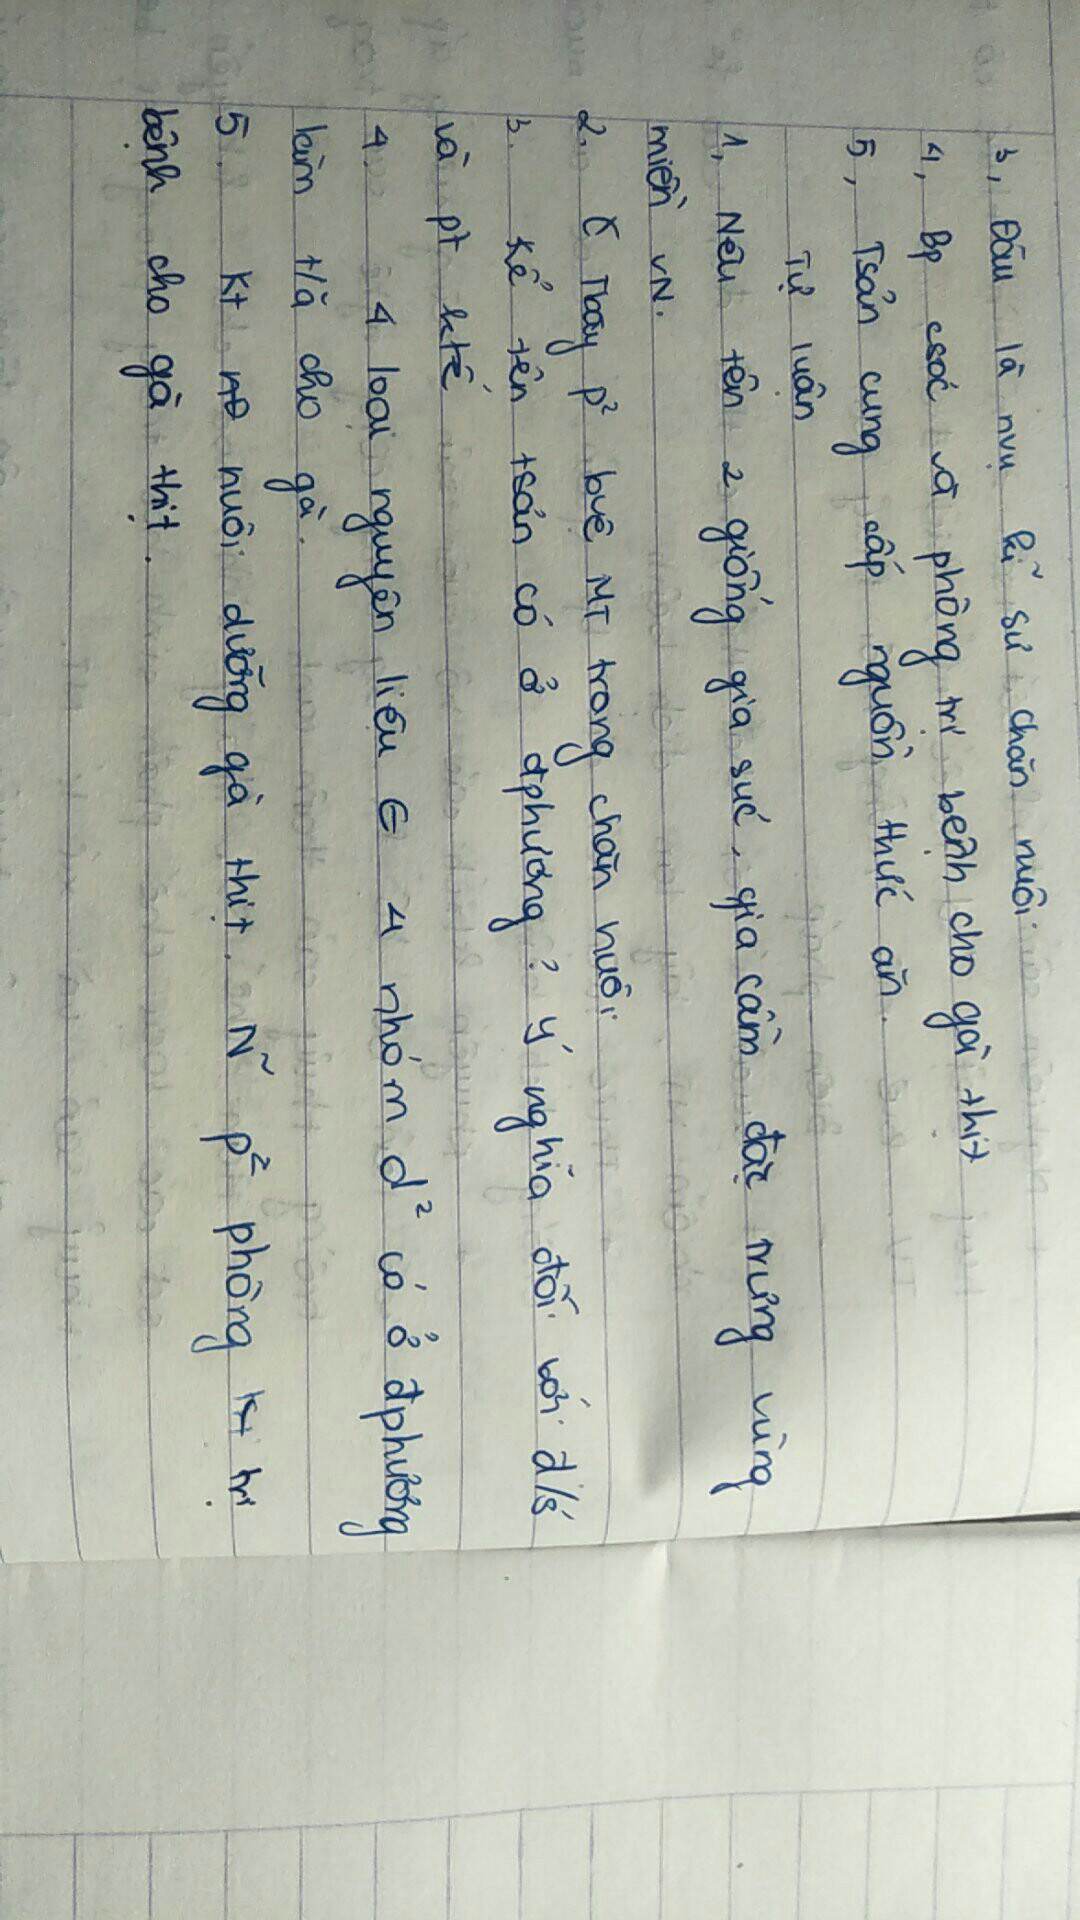 3, Đâu là nvụ kĩ sư chăn nuôi.
4, Bp csóc và phòng trị bệnh cho gà thịt
5, Tsản cung cấp nguồn thức ăn.
Tự luận
1, Nêu tên 2 giống gia súc, gia cầm đặc trưng vùng
miền VN.
2. p² bvệ MT trong chăn nuôi
3. Kể tên tsản có ở đphương? Ý nghĩa đối với đ/s
và pt ktế
4. 4 loại nguyên liệu ∈ 4 nhóm d² có ở đphương
làm t/ă cho gà.
5. Kt nuôi dưỡng gà thịt. N~ p² phòng trị
bệnh cho gà thịt.